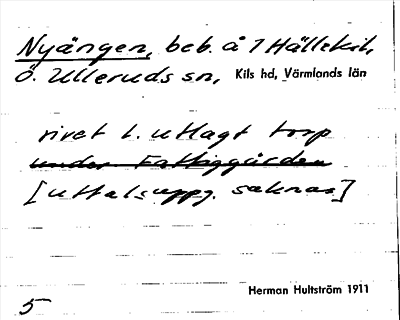 Nyängen, beb. å 1 Hällekil,
Ö. Ulleruds sn, Kils hd, Värmlands län
rivet l. utlagt torp
under Fattiggården
[uttalsuppg. saknas]
Herman Hultström 1911
5